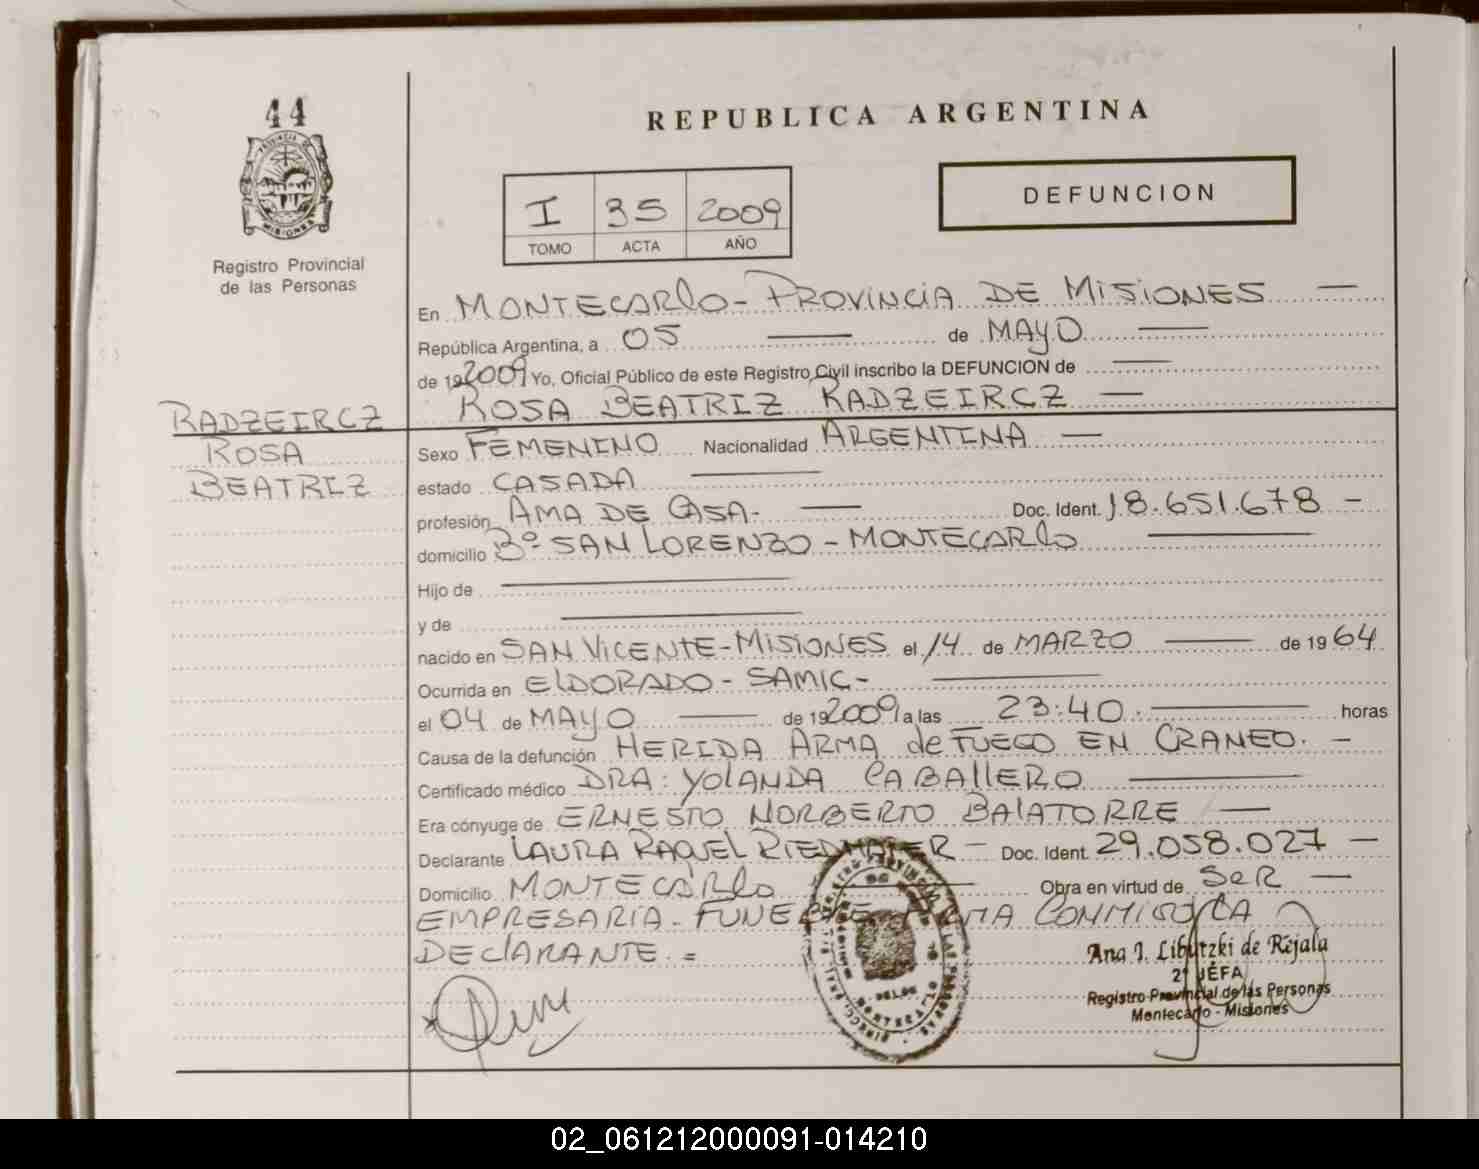 44
REPUBLICA ARGENTINA
I 35 2009
TOMO ACTA AÑO
DEFUNCION
Registro Provincial
de las Personas
En MONTECARLO - PROVINCIA DE MISIONES
República Argentina, a 05 de MAYO
de 19 2009 Yo, Oficial Público de este Registro Civil inscribo la DEFUNCION de
ROSA BEATRIZ RADZEIRCZ
RADZEIRCZ
ROSA
BEATRIZ
Sexo FEMENINO Nacionalidad ARGENTINA
estado CASADA
profesión AMA DE CASA- Doc. Ident. 18.651.678 -
domicilio Bº SAN LORENZO - MONTECARLO
Hijo de
y de
nacido en SAN VICENTE - MISIONES el 14 de MARZO de 19 64
Ocurrida en ELDORADO - SAMIC -
el 04 de MAYO de 19 2009 a las 23:40 horas
Causa de la defunción HERIDA ARMA de FUEGO EN CRANEO. -
Certificado médico DRA: YOLANDA CABALLERO
Era cónyuge de ERNESTO NORBERTO BALATORRE
Declarante LAURA RAQUEL RIEDMAIER - Doc. Ident. 29.058.027 -
Domicilio MONTECARLO Obra en virtud de SER
EMPRESARIA - FUNEBRE FIRMA CONMIGO LA
DECLARANTE. =
Ana I. Libutzki de Rejala
2ª JEFA
Registro Provincial de las Personas
Montecarlo - Misiones
02_061212000091-014210